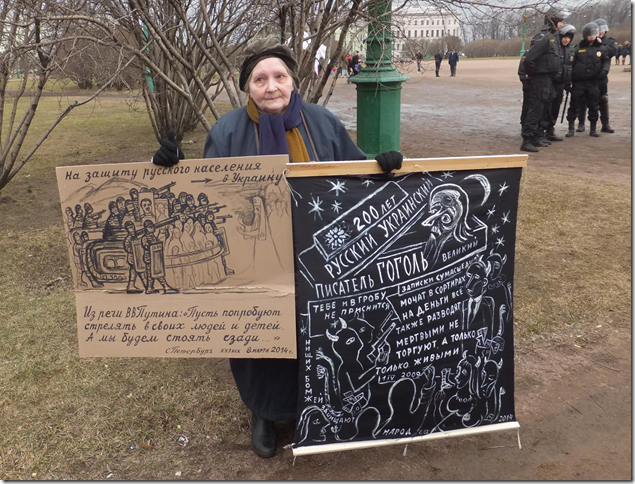 На защиту русского населения
в Украину
Из речи ВВПутина: «Пусть попробуют
стрелять в своих людей и детей.
А мы будем стоять сзади...»
С. Петербург
8 марта 2014 г.
200 ЛЕТ
РУССКИЙ УКРАИНСКИЙ
ПИСАТЕЛЬ ГОГОЛЬ ВЕЛИКИЙ
ЗАПИСКИ
ТЕБЕ И В ГРОБУ
НЕ ПРИСНИТСЯ
МОЧАТ В СОРТИРАХ
НА ДЕНЬГИ ВСЁ
ТАКЖЕ РАЗВОДЯТ
МЕРТВЫМИ НЕ
ТОРГУЮТ, А ТОЛЬКО
ТОЛЬКО ЖИВЫМИ
1 IV 2009
НИЩИХ БОМЖЕЙ
НАРОД
2014